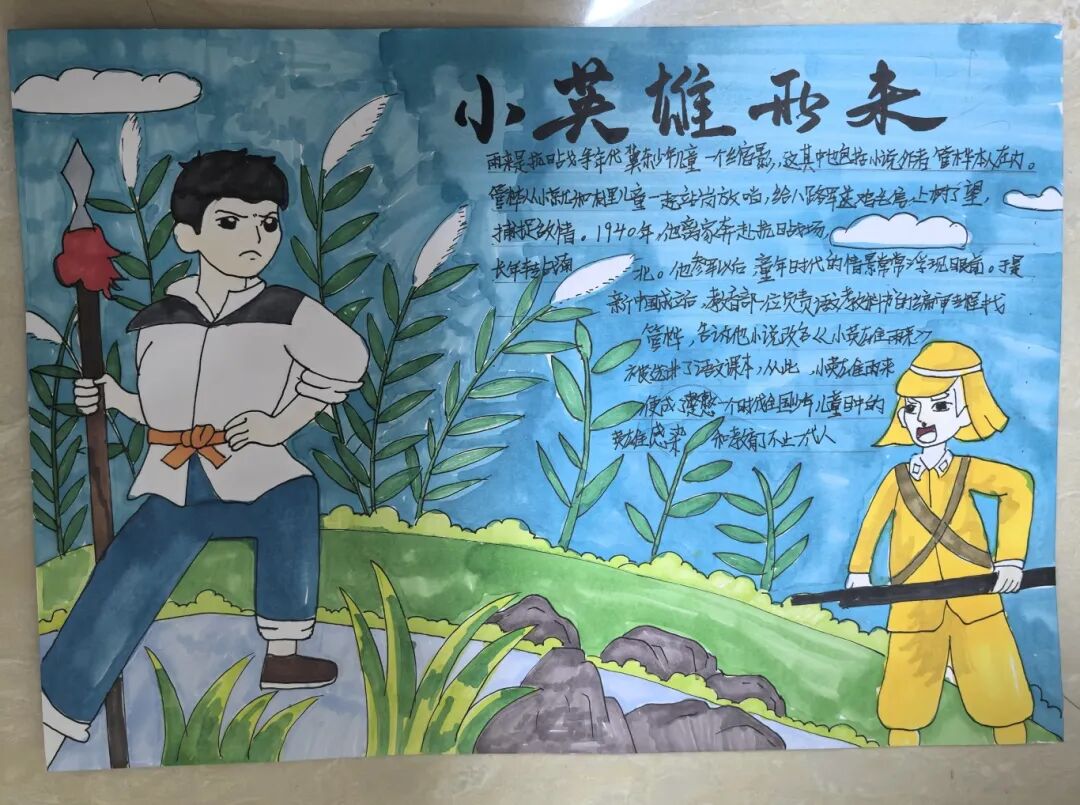 小英雄雨来
雨来是抗日战争年代冀东少年儿童一个缩影，这其中也包括小说作者管桦本人在内。
管桦从小就和村里儿童一起站岗放哨，给八路军送鸡毛信，上树了望，
捕捉敌情。1940年，他离家奔赴抗日战场
长年转占涌
北。他参军以后童年时代的情景常常浮现眼前。于是
新中国成立后，教育部一位负责语文教科书的编审
管桦，告诉他小说改名《小英雄雨来》
被选进了语文课本，从此，小英雄雨来
便成了 一个时代全国少年儿童目中的
英雄感染 和教育了不止一代人